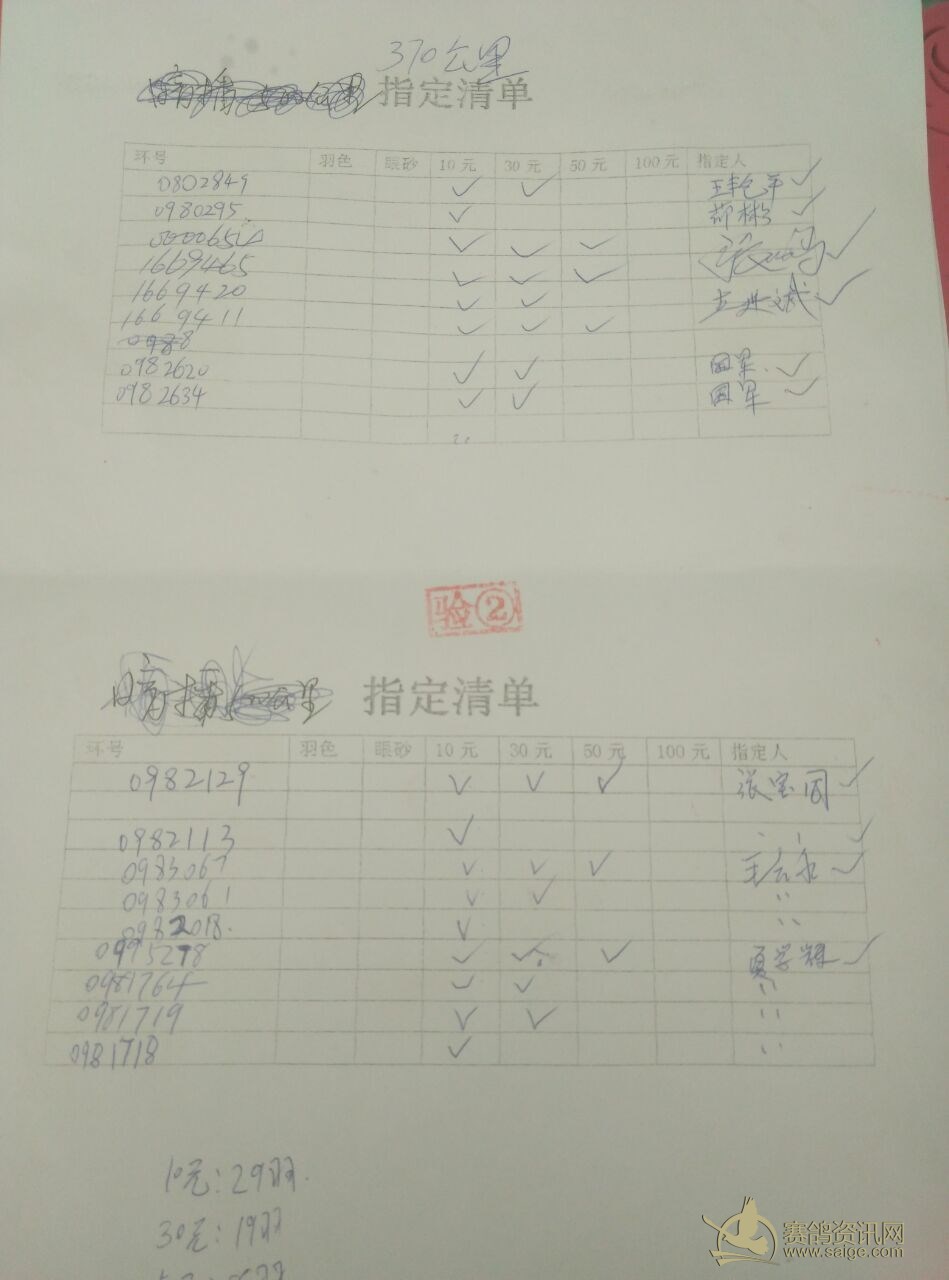 370公里
指定清单
环号 羽色 眼砂 10元 30元 50元 100元 指定人
0802849 ✓ ✓ ✓
0980295 ✓ ✓
✓ ✓ ✓ ✓
1669465 ✓ ✓ ✓
1669420 ✓ ✓ ✓
1669411 ✓ ✓ ✓
0982620 ✓ ✓ 国军 ✓
0982634 ✓ ✓ 国军 ✓
验②
指定清单
环号 羽色 眼砂 10元 30元 50元 100元 指定人
0982129 ✓ ✓ ✓ 张宝国 ✓
0982113 ✓ 〃 ✓
0983067 ✓ ✓ ✓ ✓
0983061 ✓ ✓ 〃
0982018. ✓ 〃
0995298 ✓ ✓ ✓ 夏学辉 ✓
0981764 ✓ ✓ 〃
0981719 ✓ ✓ 〃
0981718 ✓ 〃
10元:29羽.
30元:19羽
赛鸽资讯网
www.saigc.com